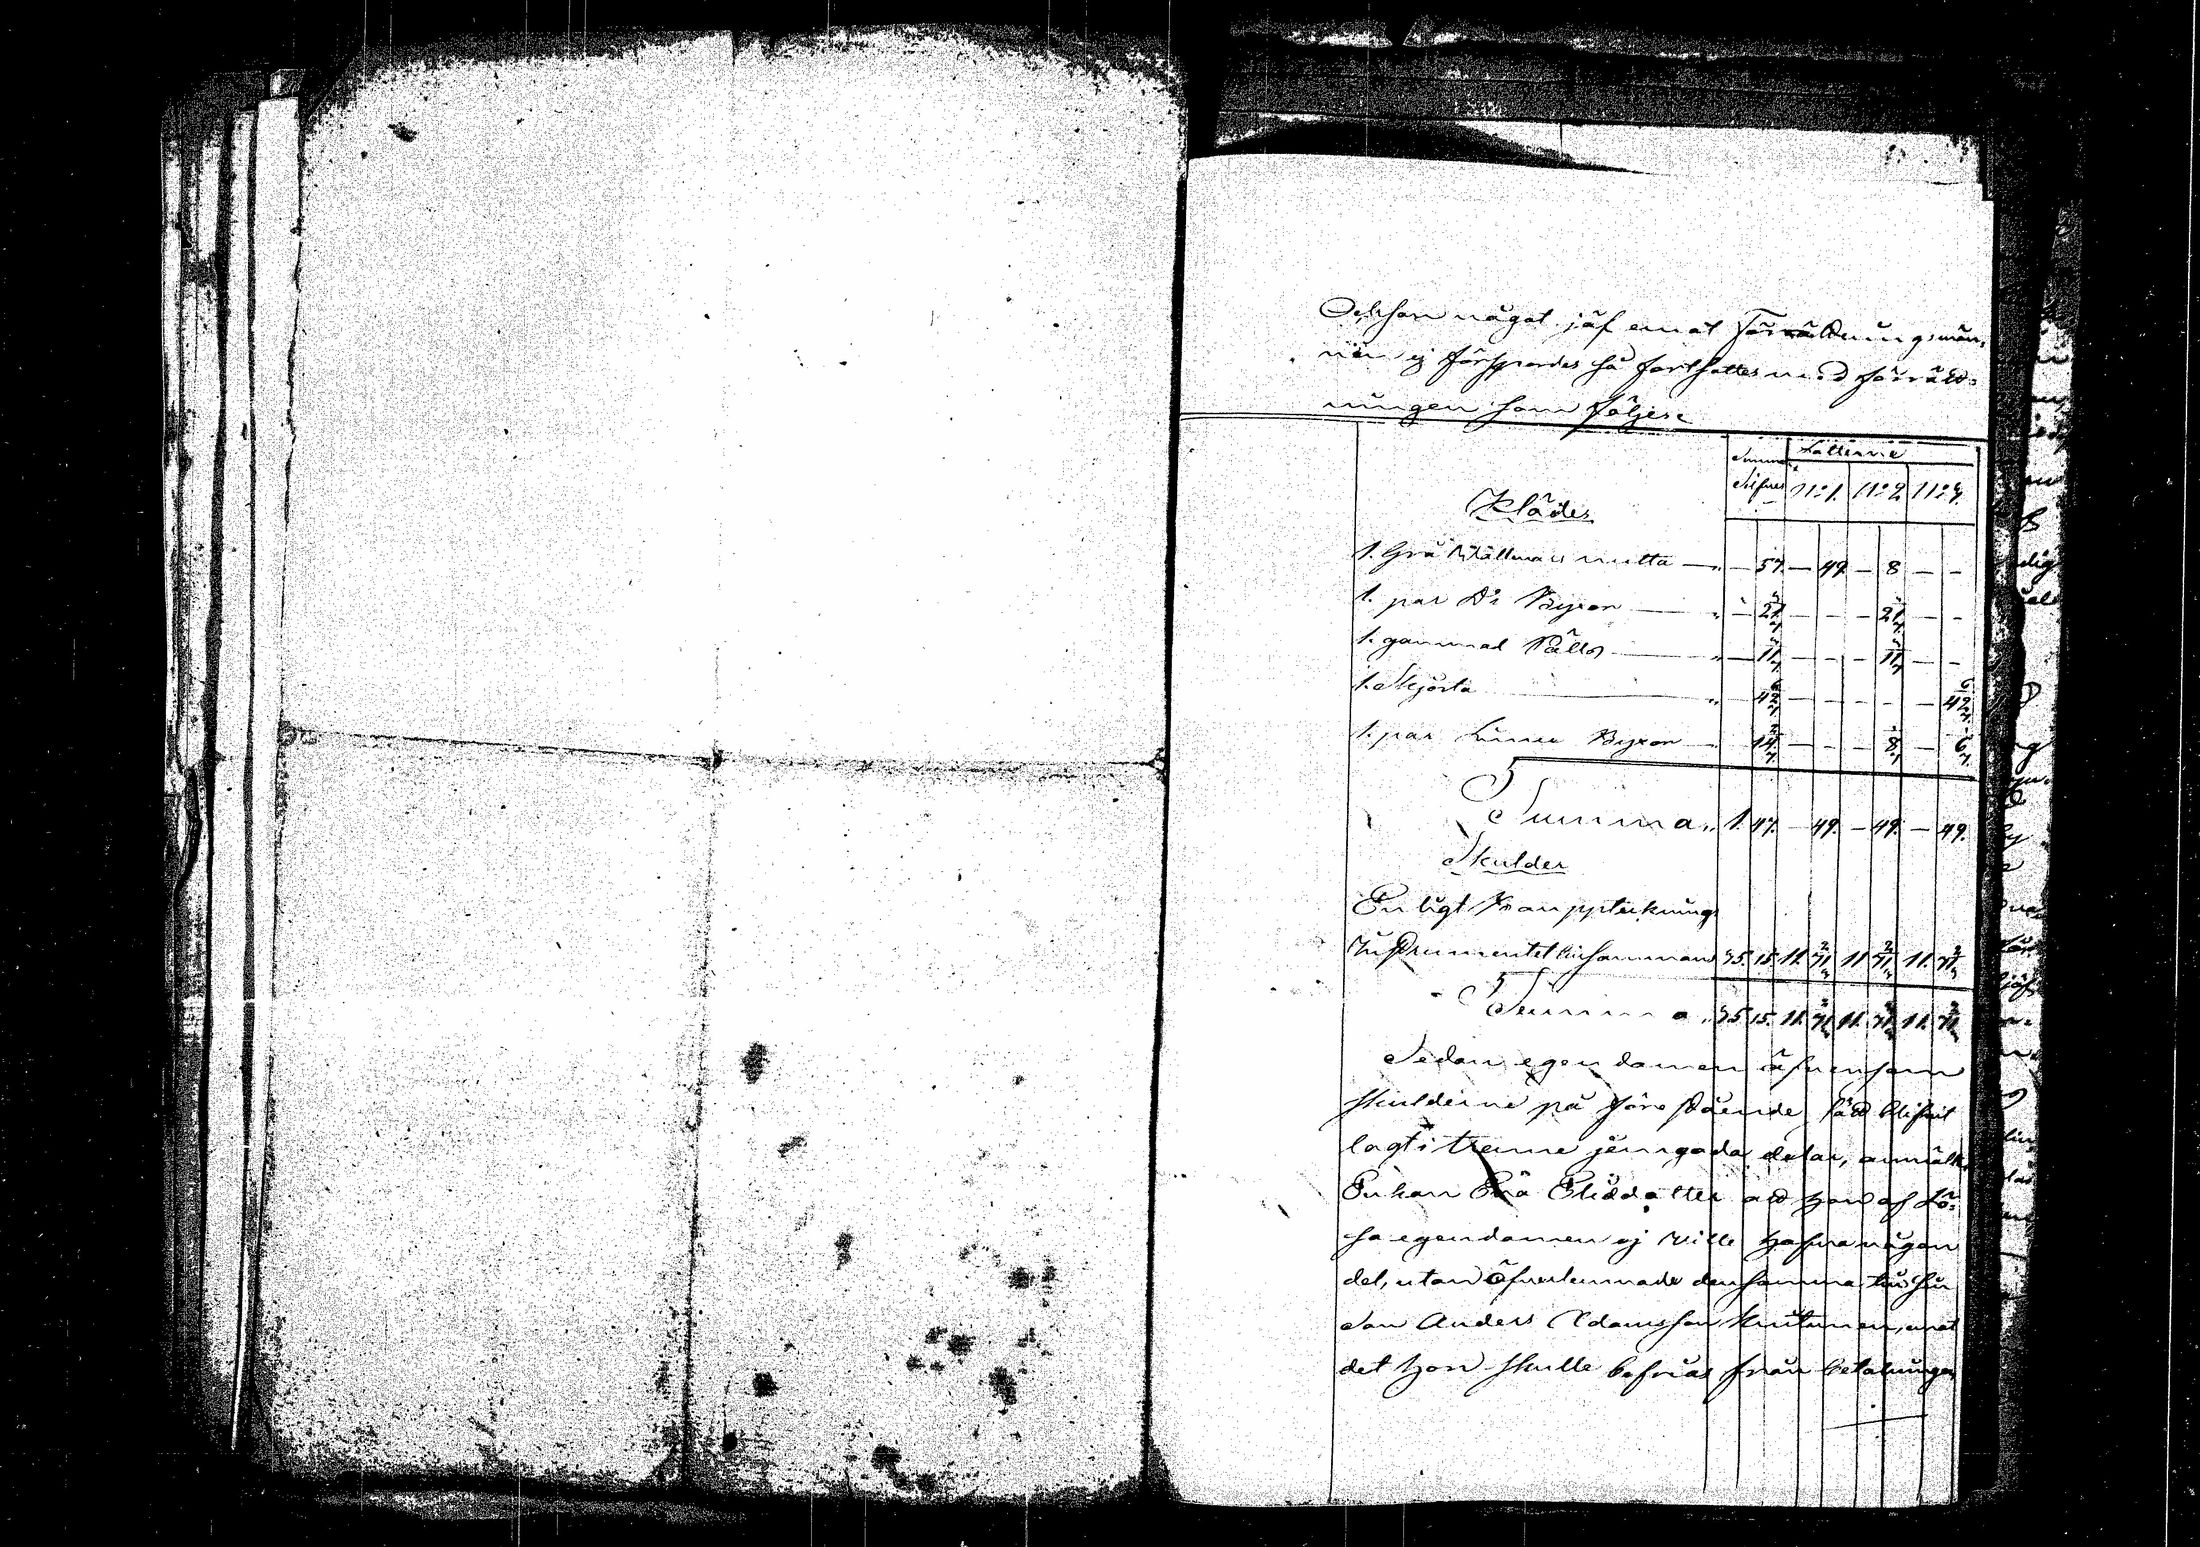 Och som något jäf emot Förrättningsmän-
nen ej förspordes så fortsattes med förrätt-
ningen som följer
Summa Silfver Lotterne
No 1. No 2 No 3.
Kläder
1. Grå Wallmars mutta — „ — 57. — 49. — 8 — —
1. par Do Byxor — „ — 21 — — — 21 — —
1. gammal Pälts — „ — 11 — — — 11 — —
1. Skjorta — „ — 42 — — — — — 42
1. par Linne Byxor — 14 — — — 8 — 6
Summa „ 1. 47. — 49. — 49. — 49.
Skulder
Enligt Bouppteknings
Instrumentet tillsamman 35. 15. 11. 71 11 71 11. 71
Summa „ 35. 15. 11. 71 11. 71 11. 71
Sedan egendomen äfvensom
Skulderne på förestående sätt blifvit
lagt i trenne jemgoda delar, anmälte
Enkan att hon af Lö-
sa egendomen ej ville hafva någon
del, utan öfverlemnade densamma till sin
Son Anders Adamsson Knutinen, mot
det hon skulle befrias från betalningen